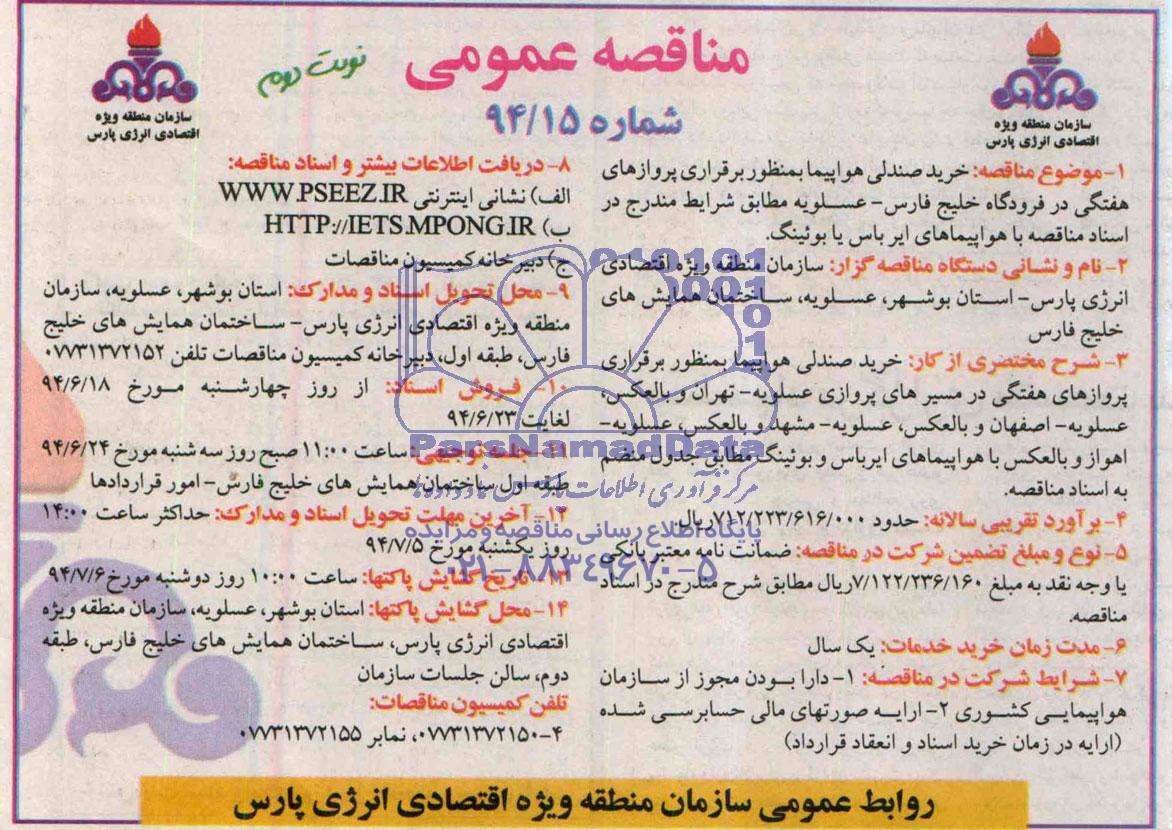 مناقصه عمومی
نوبت دوم
شماره ۹۴/۱۵
سازمان منطقه ویژه
اقتصادی انرژی پارس
سازمان منطقه ویژه
اقتصادی انرژی پارس
۱- موضوع مناقصه: خرید صندلی هواپیما بمنظور برقراری پروازهای
هفتگی در فرودگاه خلیج فارس- عسلویه مطابق شرایط مندرج در
اسناد مناقصه با هواپیماهای ایر باس یا بوئینگ.
۲- نام و نشانی دستگاه مناقصه گزار: سازمان منطقه ویژه اقتصادی
انرژی پارس- استان بوشهر، عسلویه، ساختمان همایش های
خلیج فارس
۳- شرح مختصری از کار: خرید صندلی هواپیما بمنظور برقراری
پروازهای هفتگی در مسیر های پروازی عسلویه- تهران و بالعکس،
عسلویه- اصفهان و بالعکس، عسلویه- مشهد و بالعکس، عسلویه-
اهواز و بالعکس با هواپیماهای ایرباس و بوئینگ مطابق جدول منضم
به اسناد مناقصه.
۴- برآورد تقریبی سالانه: حدود ۷۱۲/۲۲۳/۶۱۶/۰۰۰ ریال
۵- نوع و مبلغ تضمین شرکت در مناقصه: ضمانت نامه معتبر بانکی
یا وجه نقد به مبلغ ۷/۱۲۲/۲۳۶/۱۶۰ریال مطابق شرح مندرج در اسناد
مناقصه.
۶- مدت زمان خرید خدمات: یک سال
۷- شرایط شرکت در مناقصه: ۱- دارا بودن مجوز از سازمان
هواپیمایی کشوری ۲- ارایه صورتهای مالی حسابرسی شده
(ارایه در زمان خرید اسناد و انعقاد قرارداد)
۸- دریافت اطلاعات بیشتر و اسناد مناقصه:
الف) نشانی اینترنتی WWW.PSEEZ.IR
ب) HTTP://IETS.MPONG.IR
ج) دبیرخانه کمیسیون مناقصات
۹- محل تحویل اسناد و مدارک: استان بوشهر، عسلویه، سازمان
منطقه ویژه اقتصادی انرژی پارس- ساختمان همایش های خلیج
فارس، طبقه اول، دبیرخانه کمیسیون مناقصات تلفن ۰۷۷۳۱۳۷۲۱۵۲
۱۰- فروش اسناد: از روز چهارشنبه مورخ ۹۴/۶/۱۸
لغایت ۹۴/۶/۲۳
۱۱- جلسه توجیهی: ساعت ۱۱:۰۰ صبح روز سه شنبه مورخ ۹۴/۶/۲۴
طبقه اول ساختمان همایش های خلیج فارس- امور قراردادها
۱۲- آخرین مهلت تحویل اسناد و مدارک: حداکثر ساعت ۱۴:۰۰
روز یکشنبه مورخ ۹۴/۷/۵
۱۳- تاریخ گشایش پاکتها: ساعت ۱۰:۰۰ روز دوشنبه مورخ ۹۴/۷/۶
۱۴- محل گشایش پاکتها: استان بوشهر، عسلویه، سازمان منطقه ویژه
اقتصادی انرژی پارس، ساختمان همایش های خلیج فارس، طبقه
دوم، سالن جلسات سازمان
تلفن کمیسیون مناقصات:
۰۷۷۳۱۳۷۲۱۵۰-۴، نمابر ۰۷۷۳۱۳۷۲۱۵۵
ParsNamadData
مرکز فرآوری اطلاعات پارس نماد داده ها
پایگاه اطلاع رسانی مناقصه و مزایده
۰۲۱-۸۸۳۴۹۶۷۰-۵
روابط عمومی سازمان منطقه ویژه اقتصادی انرژی پارس